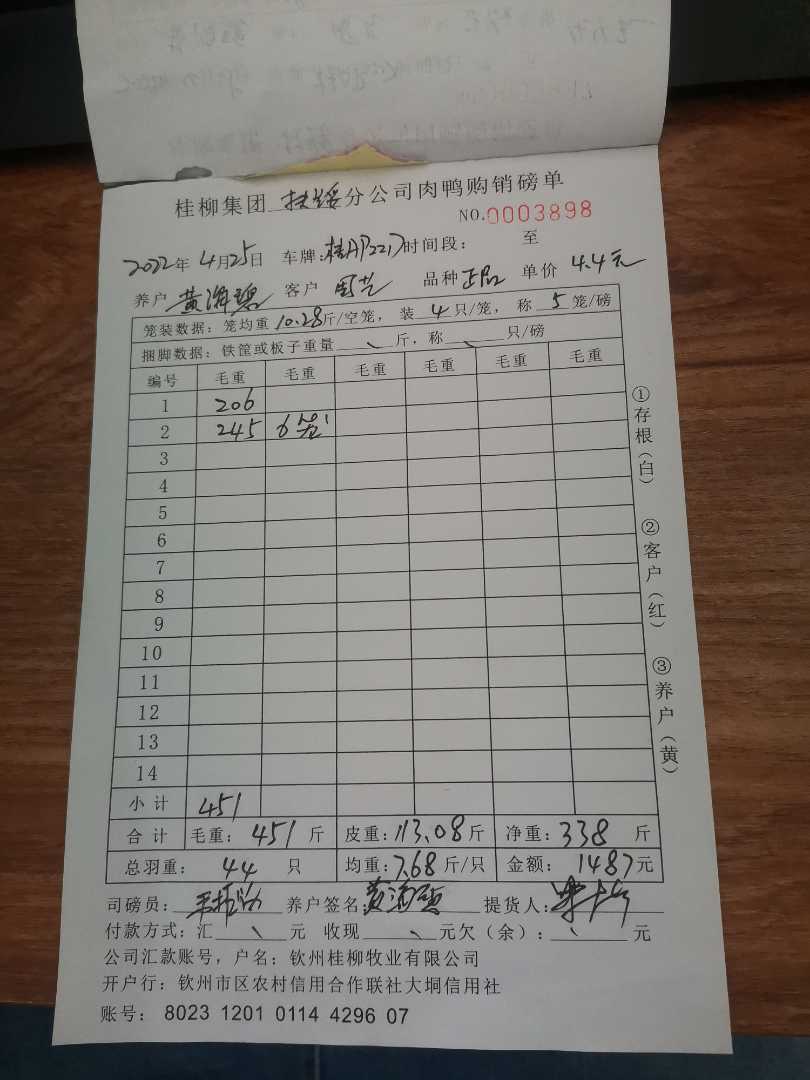 桂柳集团 扶绥 分公司肉鸭购销磅单
NO.0003898
2022年4月25日 车牌: 时间段: 至
养户 黄海碧 客户 周艺 品种 正品 单价 4.4元
笼装数据: 笼均重 10.28斤/空笼, 装 4 只/笼, 称 5 笼/磅
捆脚数据: 铁筐或板子重量 、 斤, 称 、 只/磅
编号 毛重 毛重 毛重 毛重 毛重 毛重
1 206
2 245 6笼
3
4
5
6
7
8
9
10
11
12
13
14
小计 451
合计 毛重: 451 斤 皮重: 113.08斤 净重: 338 斤
总羽重: 44 只 均重: 7.68斤/只 金额: 1487元
司磅员: 养户签名: 提货人:
付款方式: 汇 、 元 收现 、 元欠(余): 、 元
公司汇款账号, 户名: 钦州桂柳牧业有限公司
开户行: 钦州市区农村信用合作联社大垌信用社
账号: 8023 1201 0114 4296 07
①存根(白)
②客户(红)
③养户(黄)